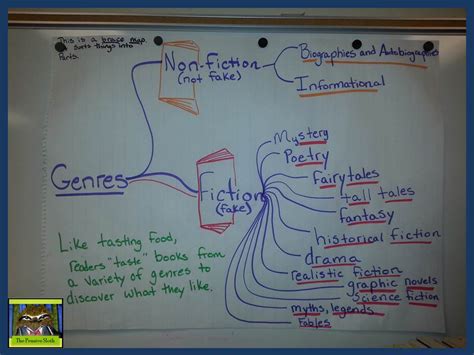 This is a brace map.
It sorts things into
Parts.
Non-fiction
(not fake)
Biographies and Autobiographies
Informational
Genres
Fiction
(fake)
Mystery
Poetry
Fairytales
tall tales
fantasy
historical fiction
drama
realistic fiction
graphic novels
science fiction
myths, legends
fables
Like tasting food,
readers "taste" books from
a variety of genres to
discover what they like.
The Pensive Sloth